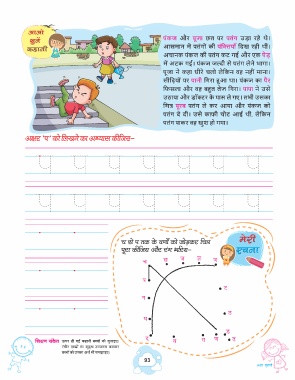 आओ
सुनें
कहानी
पंकज और पूरब छत पर पतंग उड़ा रहे थे।
आसमान में पतंगों की पंक्तियाँ दिख रही थीं।
अचानक पंकज की पतंग कट गई और एक पेड़
में अटक गई। पंकज जल्दी से पतंग लेने भागा।
पूजा ने कहा धीरे चलो लेकिन वह नहीं माना।
सीढ़ियों पर पानी गिरा हुआ था। पंकज का पैर
फिसला और वह बहुत तेज गिरा। पापा ने उसे
उठाया और डॉक्टर के पास ले गए। तभी उसका
मित्र पूरब पतंग ले कर आया और पंकज को
पतंग दे दी। उसे काफी चोट आई थी, लेकिन
पतंग पाकर वह खुश हो गया।
अक्षर 'प' को लिखने का अभ्यास कीजिए–
प प प प प प प
प प प प प प प
च से प तक के वर्णों को जोड़कर चित्र
पूरा कीजिए और रंग भरिए–
मेरी
रचना
ट
ठ
93